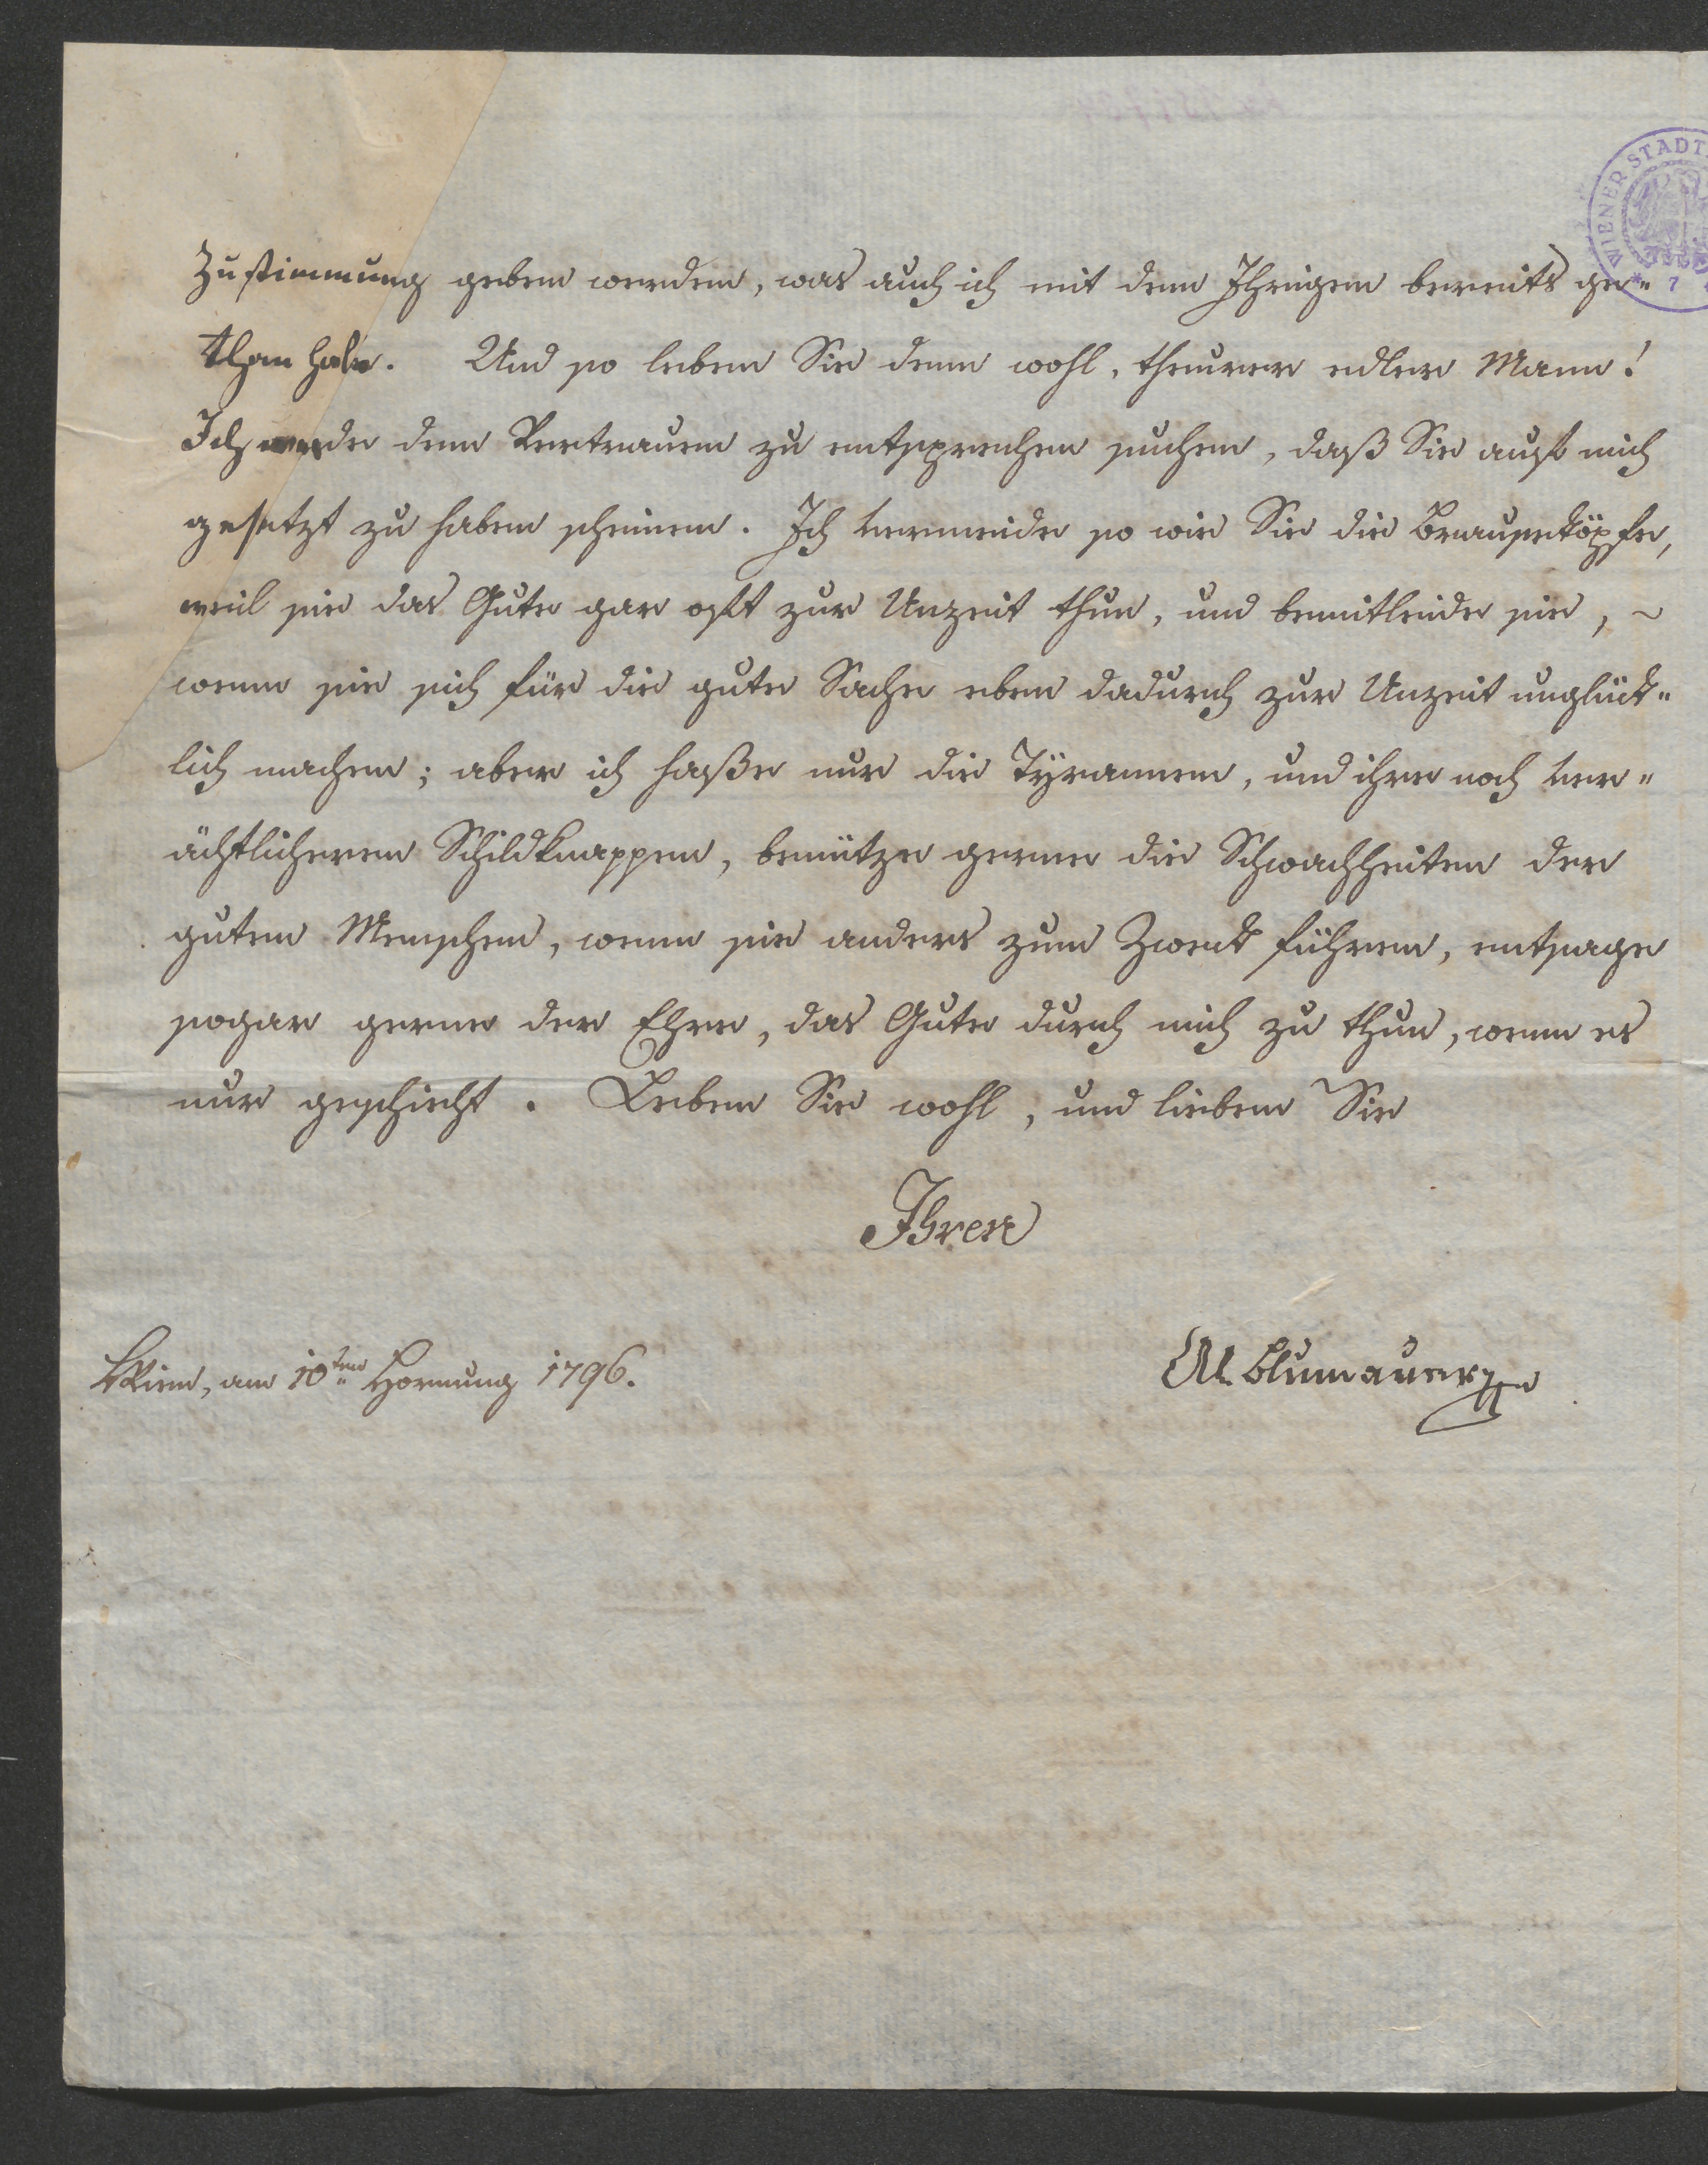 WIENER STADT
7
Zustimmung geben werden, was auch ich mit dem Ihrigen bereits ge-
than habe. Und so leben Sie denn wohl, theurer edler Mann!
Ich werde dem Vertrauen zu entsprechen suchen, daß Sie auf mich
gesetzt zu haben scheinen. Ich vermeide so wie Sie die Brauseköpfe,
weil sie das Gute gar oft zur Unzeit thun, und bemitleide sie, ~
wenn sie sich für die gute Sache eben dadurch zur Unzeit unglück-
lich machen; aber ich haße nur die Tÿrannen, und ihre noch ver-
ächtlicheren Schildknappen, benütze gerne die Schwachheiten der
guten Menschen, wenn sie anders zum Zweck führen, entsage
sogar gerne der Ehre, das Gute durch mich zu thun, wenn es
nur geschieht. Leben Sie wohl, und lieben Sie
Ihren
Wien, am 10ten Hornung 1796.
Al. Blumauer